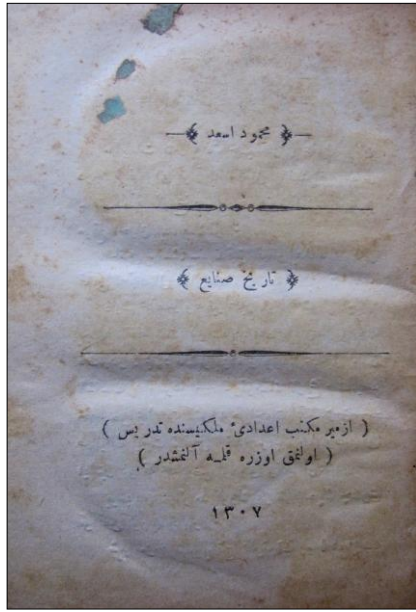 ﴿ محمود اسعد ﴾
﴿ تاریخ صنایع ﴾
( ازمیر مكتب اعدادئ ملكیسنده تدریس )
( اولنمق اوزره قلمه آلنمشدر )
١٣٠٧